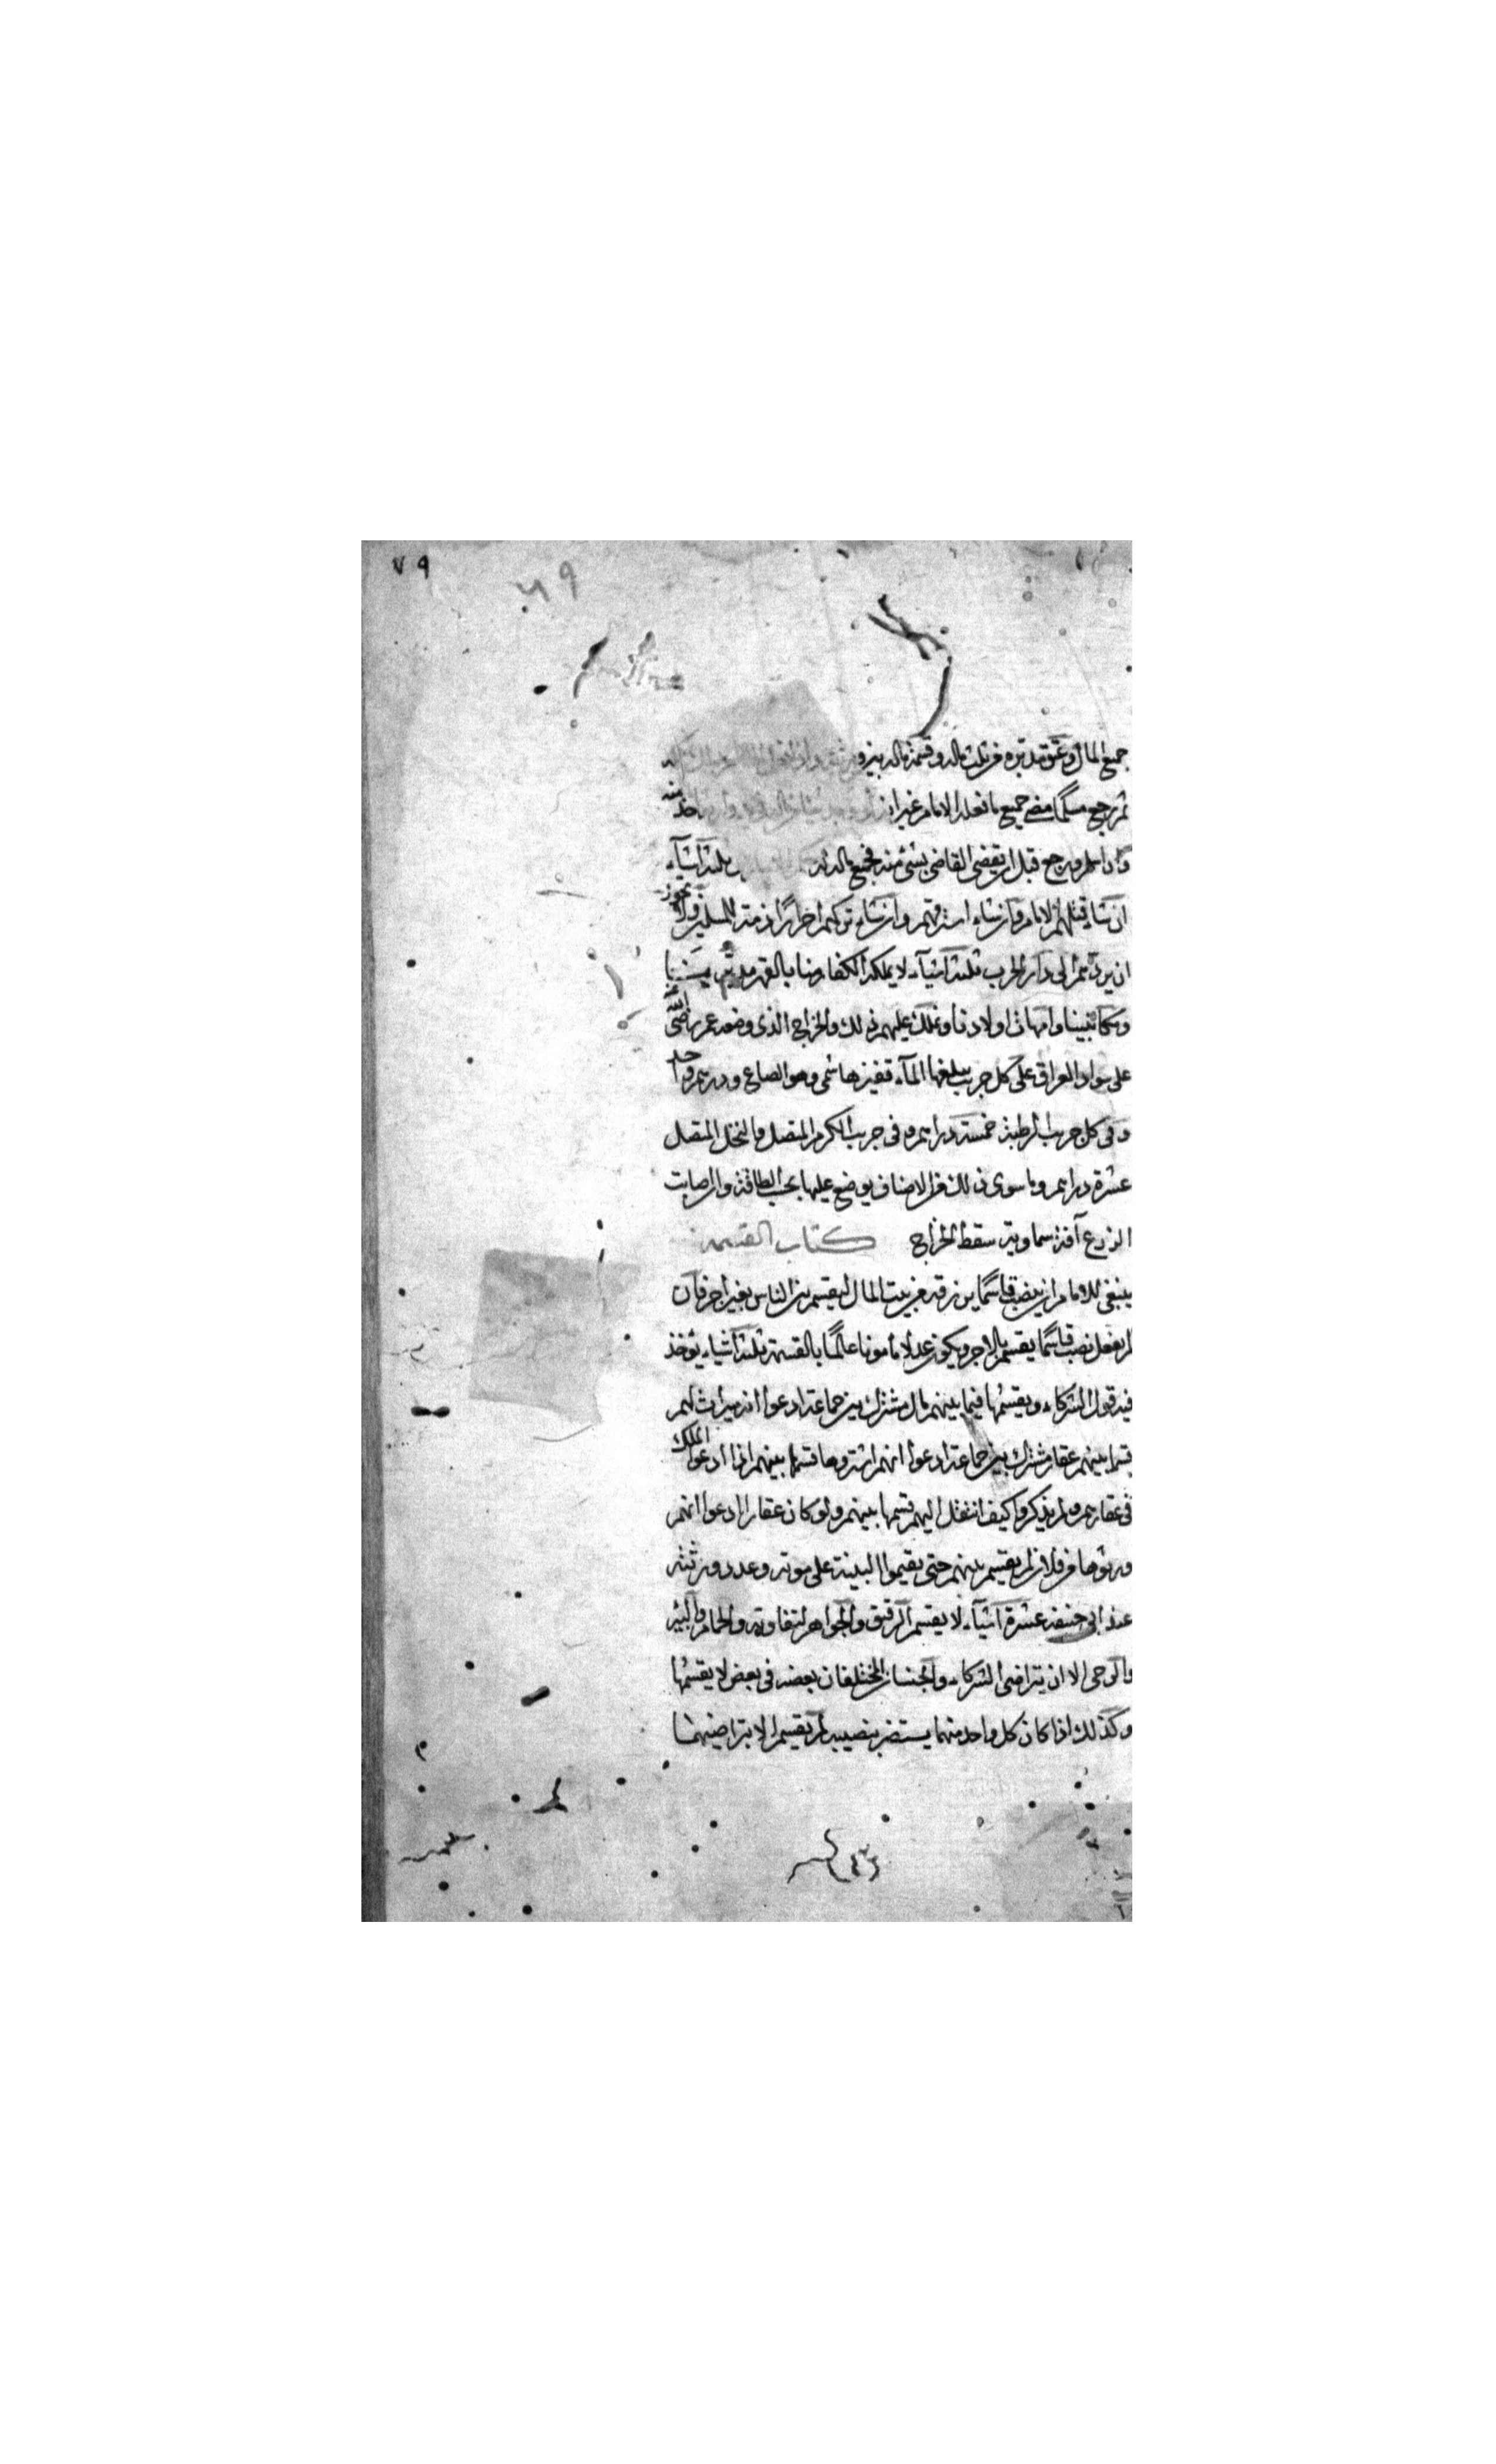 ٧٩
٧٩
جميع المال وعتق مدبره من ثلث ماله وقسمة ماله بين ورثته واذا فعل
ثم رجع مسلما مضى جميع ما فعله الامام غير ان منه
واذا اسلم ورجع قبل ان يقضى القاضى بشئ منه فجميع ماله له ثلثة اشيآء
ان شاء قتلهم الامام وان شاء استرقهم وان شاء تركهم احرارا ذمة للمسلمين ولا يجوز
ان يردهم الى دار الحرب ثلثة اشيآء لا يملكه الكفار منا بالقهر مدبرينا
ومكاتبينا وامهات اولادنا ونملك عليهم ذلك والخراج الذى وضعه عمر رضى الله عنه
على سواد العراق على كل جريب يبلغها المآء قفيز هاشمى وهو الصاع ودرهم واحد
وفى كل جريب الرطبة خمسة دراهم وفى جريب الكرم المتصل والنخل المتصل
عشرة دراهم وما سوى ذلك من الاصناف يوضع عليها بحسب الطاقة وان اصابت
الزرع آفة سماوية سقط الخراج كتاب القسمه
ينبغى للامام ان ينصب قاسما يرزقه من بيت المال ليقسم بين الناس بغير اجر فان
لم يفعل نصب قاسما يقسم بالاجر ويكون عدلا مأمونا عالما بالقسمة ثلثة اشياء يؤخذ
فيه قول الشركاء ويقسمها فيما بينهم مال مشترك بين جماعة ادعوا انه ميراث لهم
قسما بينهم عقار مشترك بين جماعة ادعوا انهم اشتروها قسما بينهم اذا ادعوا الملك
فى عقارهم ولم يذكروا كيف انتقل اليهم قسمها بينهم ولو كان عقارا ادعوا انهم
ورثوها من فلان لم يقسم بينهم حتى يقيموا البينة على موته وعدد ورثته
عند ابى حنيفة عشرة اشيآء لا يقسم الرقيق والجواهر لتفاوته والحمام والبئر
والرحى الا ان يتراضى الشركاء والجنسان المختلفان بعضه فى بعض لا يقسمها
وكذلك اذا كان كل واحد منهما يستضر بنصيبه لم يقسم الا بتراضيهما